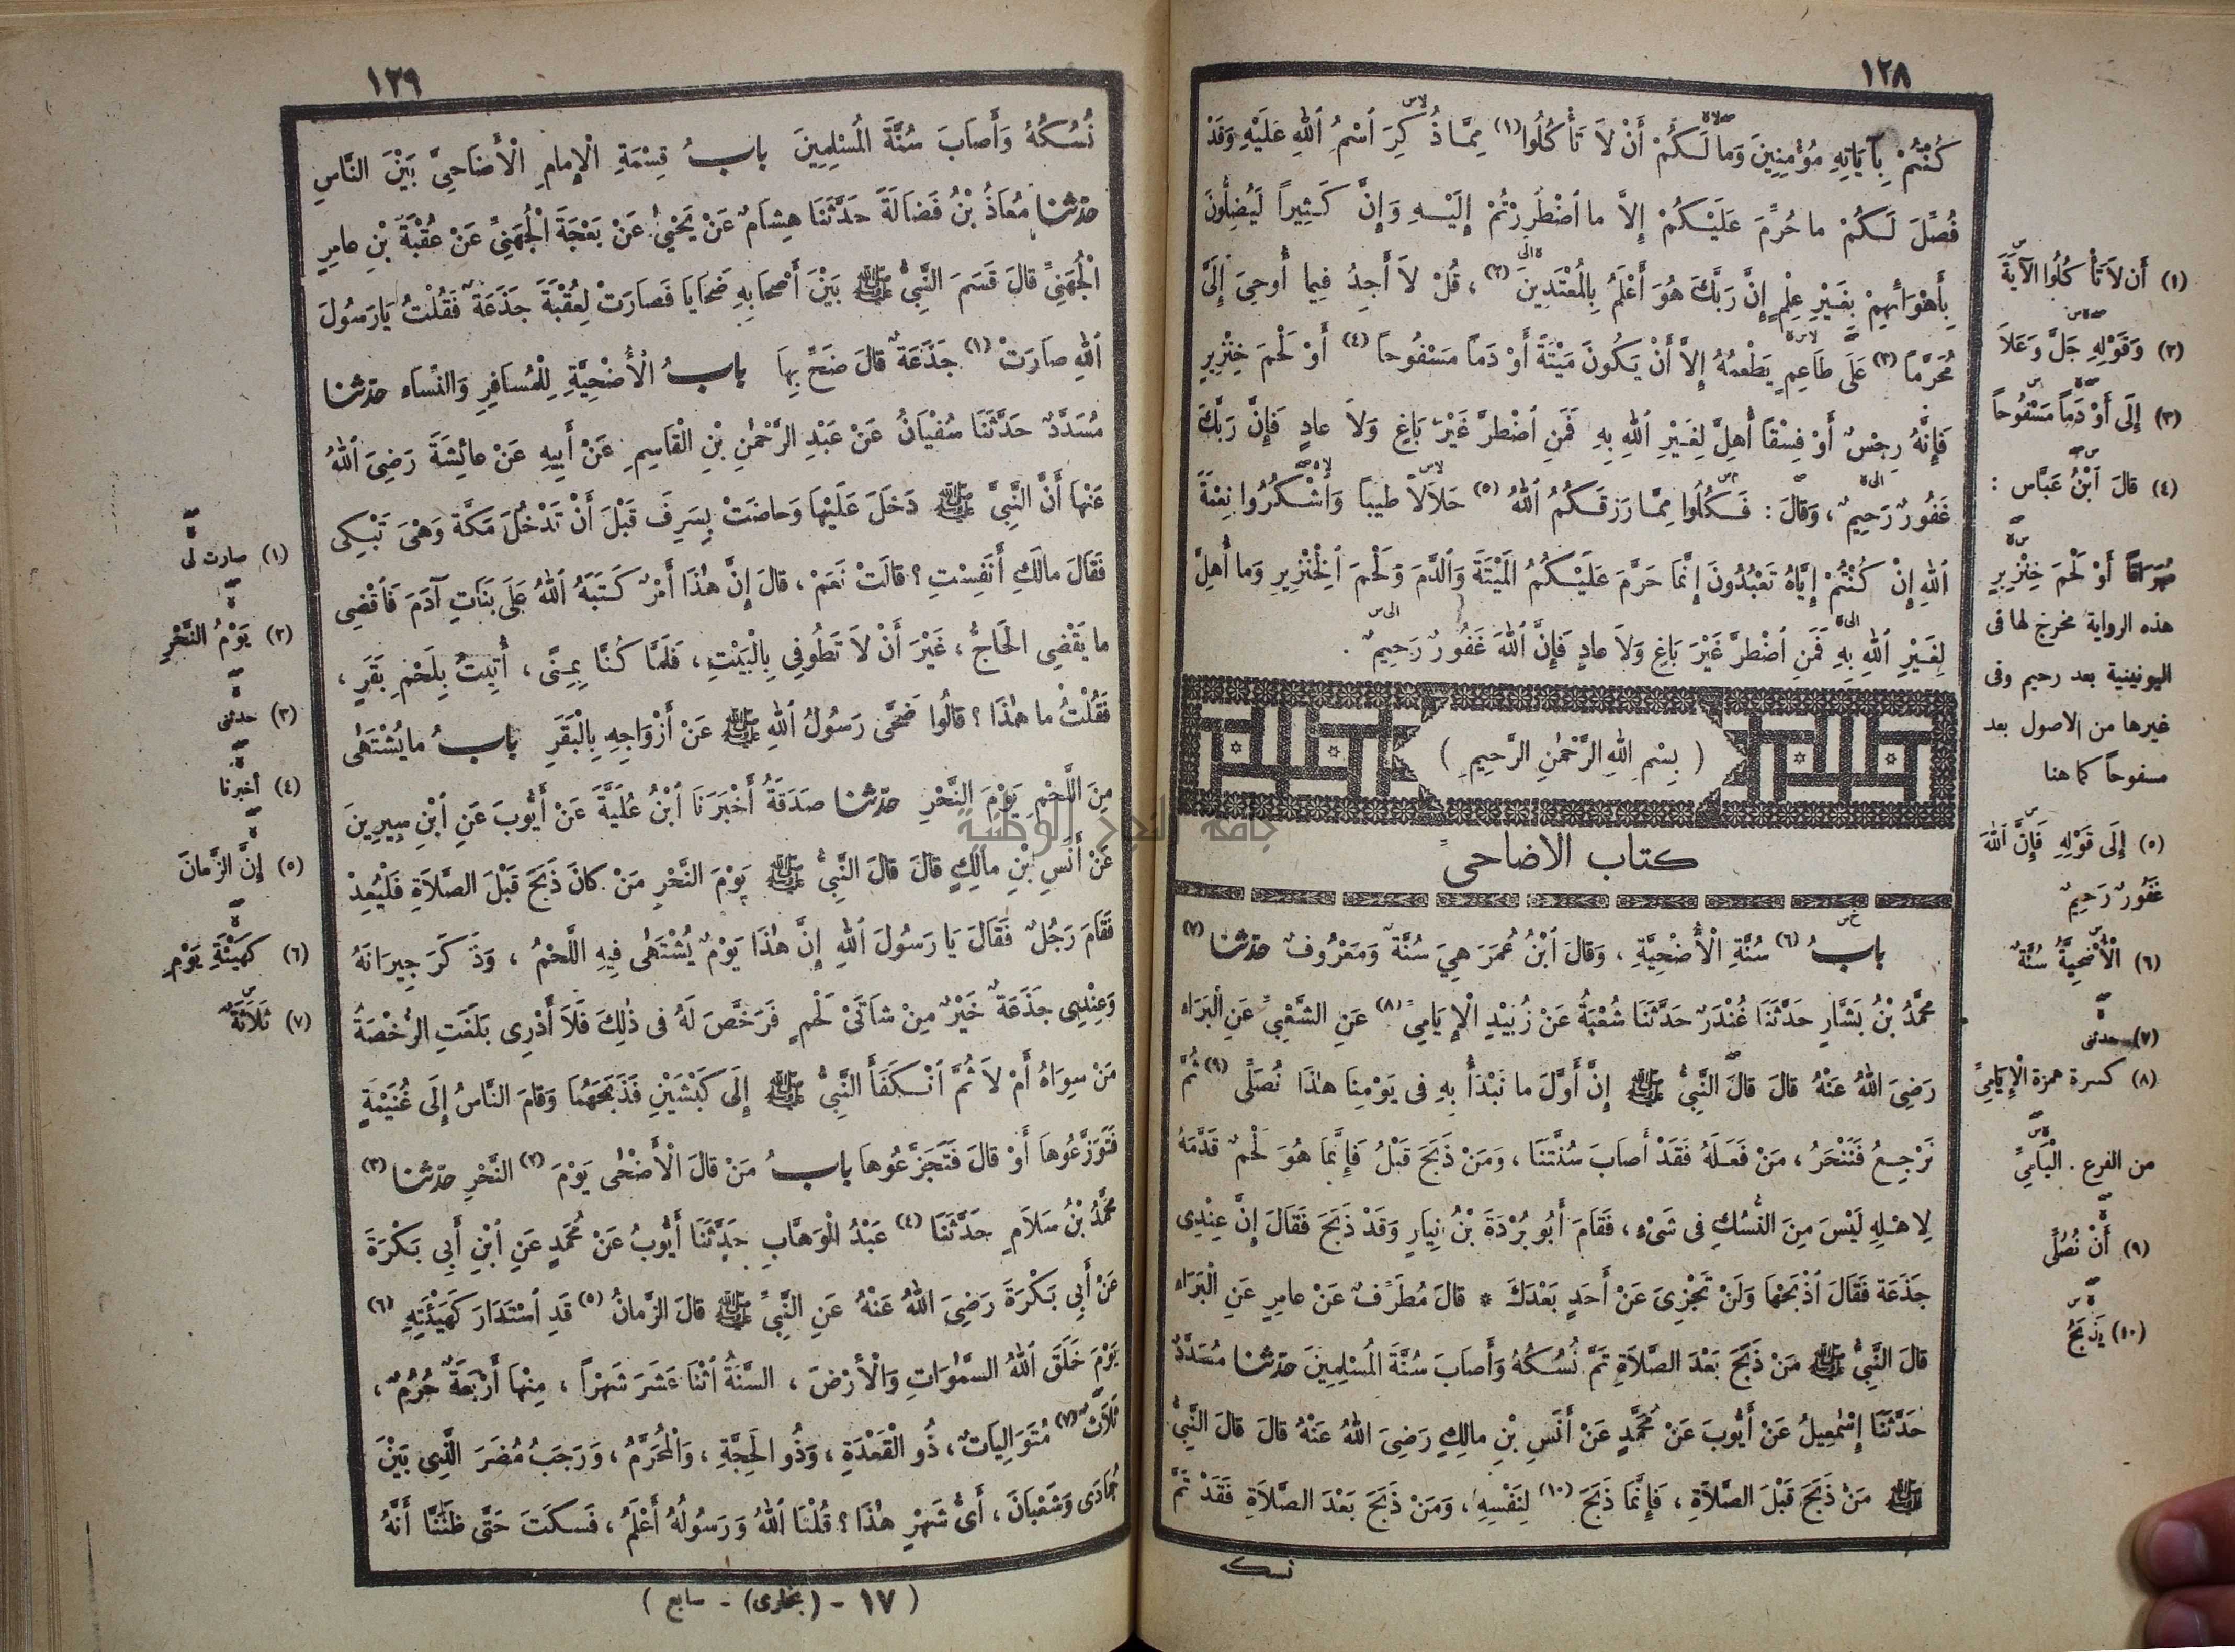 ١٢٨
كُنْتُمْ بِآيَاتِهِ مُؤْمِنِينَ وَمَا لَكُمْ أَنْ لَا تَأْكُلُوا (١) مِمَّا ذُكِرَ اسْمُ اللهِ عَلَيْهِ وَقَدْ
فُصِّلَ لَكُمْ ما حُرِّمَ عَلَيْكُمْ إِلاَّ ما اضْطُرِرْتُمْ إِلَيْهِ وَإِنَّ كَثِيراً لَيُضِلُّونَ
بِأَهْوَائِهِمْ بِغَيْرِ عِلْمٍ إِنَّ رَبَّكَ هُوَ أَعْلَمُ بِالْمُعْتَدِينَ (٢) ، قُلْ لاَ أَجِدُ فِيما أُوحِيَ إِلَىَّ
مُحَرَّمًا (٣) عَلَى طَاعِمٍ يَطْعَمُهُ إِلاَّ أَنْ يَكُونَ مَيْتَةً أَوْ دَماً مَسْفُوحاً (٤) أَوْ لَحْمَ خِنْزِيرٍ
فَإِنَّهُ رِجْسٌ أَوْ فِسْقاً أُهِلَّ لِغَيْرِ اللهِ بِهِ فَمَنِ اضْطُرَّ غَيْرَ بَاغٍ وَلاَ عادٍ فَإِنَّ رَبَّكَ
غَفُورٌ رَحِيمٌ ، وَقالَ : فَكُلُوا مِمَّا رَزَقَكُمُ اللهُ (٥) حَلاَلاً طيبا وَاشْكُرُوا نِعْمَةَ
اللهِ إِنْ كُنْتُمْ إِيَّاهُ تَعْبُدُونَ إِنَّمَا حَرَّمَ عَلَيْكُمُ المَيْتَةَ وَالدَّمَ وَلَحْمَ الْخِنْزِيرِ وَما أُهِلَّ
لِغَيْرِ اللهِ بِهِ فَمَنِ اضْطُرَّ غَيْرَ بَاغٍ وَلاَ عادٍ فَإِنَّ اللهَ غَفُورٌ رَحِيمٌ .
( بِسْمِ اللهِ الرَّحْمٰنِ الرَّحِيمِ )
كتاب الاضاحى
بابُ (٦) سُنَّةِ الْأُضْحِيَّةِ ، وَقالَ ابْنُ عُمَرَ هِيَ سُنَّةٌ وَمَعْرُوفٌ حدّثنا (٧)
مُحَمَّدُ بْنُ بَشَّارٍ حَدَّثَنَا غُنْدَرٌ حَدَّثَنَا شُعْبَةُ عَنْ زُبَيْدٍ الْإِيَامِيِّ (٨) عَنِ الشَّعْبِيِّ عَنِ الْبَرَاءِ
رَضِيَ اللهُ عَنْهُ قالَ قالَ النَّبِيُّ ﷺ إِنَّ أَوَّلَ ما نَبْدَأُ بِهِ فى يَوْمِنَا هٰذَا نُصَلِّى (٩) ثُمَّ
نَرْجِعُ فَنَنْحَرُ ، مَنْ فَعَلَهُ فَقَدْ أَصَابَ سُنَّتَنَا ، وَمَنْ ذَبَحَ قَبْلُ فَإِنَّمَا هُوَ لَحْمٌ قَدَّمَهُ
لِاهْلِهِ لَيْسَ مِنَ النُّسُكِ فى شَىْءٍ ، فَقَامَ أَبُو بُرْدَةَ بْنُ نِيَارٍ وَقَدْ ذَبَحَ فَقَالَ إِنَّ عِنْدِى
جَذَعَةً فَقَالَ اذْبَحْهَا وَلَنْ تَجْزِىَ عَنْ أَحَدٍ بَعْدَكَ * قالَ مُطَرِّفٌ عَنْ عامِرٍ عَنِ الْبَرَاءِ
قالَ النَّبِيُّ ﷺ مَنْ ذَبَحَ بَعْدَ الصَّلاَةِ تَمَّ نُسُكُهُ وَأَصَابَ سُنَّةَ المُسْلِمِينَ حدّثنا مُسَدَّدٌ
حَدَّثَنَا إِسْمٰعِيلُ عَنْ أَيُّوبَ عَنْ مُحَمَّدٍ عَنْ أَنَسِ بْنِ مالِكٍ رَضِيَ اللهُ عَنْهُ قالَ قالَ النَّبِيُّ
ﷺ مَنْ ذَبَحَ قَبْلَ الصَّلاَةِ ، فَإِنَّمَا ذَبَحَ (١٠) لِنَفْسِهِ ، وَمَنْ ذَبَحَ بَعْدَ الصَّلاَةِ فَقَدْ تَمَّ
نسكه
(١) أَن لاَ تَأْكُلُوا الآيَةَ
(٢) وَقَوْلِهِ جَلَّ وَعَلاَ
(٣) إِلَى أَوْ دَماً مَسْفُوحاً
(٤) قالَ ابْنُ عَبَّاس :
مُهَرَاقًا أَوْ لَحْمَ خِنْزِيرٍ
هذه الرواية مخرج لها فى
اليونينية بعد رحيم وفى
غيرها من الاصول بعد
مسفوحاً كما هنا
(٥) إِلَى قَوْلِهِ فَإِنَّ اللهَ
غَفُورٌ رَحِيمٌ
(٦) الْأُضْحِيَّةُ سُنَّةٌ
(٧) حدثنى
(٨) كسرة همزة الْإِيَامِيِّ
من الفرع . الْيَامِيِّ
(٩) أَنْ نُصَلِّىَ
(١٠) يَذْبَحُ
١٢٩
نُسُكُهُ وَأَصَابَ سُنَّةَ المُسْلِمِينَ بابُ قِسْمَةِ الْإِمامِ الْأَضَاحِيَّ بَيْنَ النَّاسِ
حدّثنا مُعَاذُ بْنُ فَضَالَةَ حَدَّثَنَا هِشَامٌ عَنْ يَحْيىٰ عَنْ بَعْجَةَ الْجُهَنِيِّ عَنْ عُقْبَةَ بْنِ عامِرٍ
الْجُهَنِيِّ قالَ قَسَمَ النَّبِيُّ ﷺ بَيْنَ أَصْحَابِهِ ضَحَايَا فَصَارَتْ لِعُقْبَةَ جَذَعَةٌ فَقُلْتُ يَا رَسُولَ
اللهِ صارَتْ (١) جَذَعَةٌ قالَ ضَحِّ بِهَا بابُ الْأُضْحِيَّةِ لِلْمُسَافِرِ وَالنِّسَاء حدّثنا
مُسَدَّدٌ حَدَّثَنَا سُفْيَانُ عَنْ عَبْدِ الرَّحْمٰنِ بْنِ الْقَاسِمِ عَنْ أَبِيهِ عَنْ عائِشَةَ رَضِيَ اللهُ
عَنْهَا أَنَّ النَّبِيَّ ﷺ دَخَلَ عَلَيْهَا وَحاضَتْ بِسَرِفَ قَبْلَ أَنْ تَدْخُلَ مَكَّةَ وَهْىَ تَبْكِى
فَقَالَ مالَكِ أَنَفِسْتِ ؟ قالَتْ نَعَمْ ، قالَ إِنَّ هٰذَا أَمْرٌ كَتَبَهُ اللهُ عَلَى بَنَاتِ آدَمَ فَاقْضِى
ما يَقْضِى الْحَاجُّ ، غَيْرَ أَنْ لاَ تَطُوفِى بِالْبَيْتِ ، فَلَمَّا كُنَّا بِمِنًى ، أُتِيتُ بِلَحْمِ بَقَرٍ ،
فَقُلْتُ ما هٰذَا ؟ قالُوا ضَحَّى رَسُولُ اللهِ ﷺ عَنْ أَزْوَاجِهِ بِالْبَقَرَ بابُ ما يُشْتَهٰى
مِنَ اللَّحْمِ يَوْمَ النَّحْرِ حدّثنا صَدَقَةُ أَخْبَرَنَا ابْنُ عُلَيَّةَ عَنْ أَيُّوبَ عَنِ ابْنِ سِيرِينَ
عَنْ أَنَسِ بْنِ مالِكٍ قالَ قالَ النَّبِيُّ ﷺ يَوْمَ النَّحْرِ مَنْ كانَ ذَبَحَ قَبْلَ الصَّلاَةِ فَلْيُعِدْ
فَقَامَ رَجُلٌ فَقَالَ يَا رَسُولَ اللهِ إِنَّ هٰذَا يَوْمٌ يُشْتَهٰى فِيهِ اللَّحْمُ ، وَذَكَرَ جِيرَانَهُ
وَعِنْدِى جَذَعَةٌ خَيْرٌ مِنْ شاتَىْ لَحْمٍ فَرَخَّصَ لَهُ فى ذٰلِكَ فَلاَ أَدْرِى بَلَغَتِ الرُّخْصَةُ
مَنْ سِوَاهُ أَمْ لاَ ثُمَّ انْكَفَأَ النَّبِيُّ ﷺ إِلَى كَبْشَيْنِ فَذَبَحَهُمَا وَقامَ النَّاسُ إِلَى غُنَيْمَةٍ
فَتَوَزَّعُوهَا أَوْ قالَ فَتَجَزَّعُوها بابُ مَنْ قالَ الْأَضْحٰى يَوْمَ (٢) النَّحْرِ حدّثنا (٣)
مُحَمَّدُ بْنُ سَلاَمٍ حَدَّثَنَا (٤) عَبْدُ الْوَهَّابِ حَدَّثَنَا أَيُّوبُ عَنْ مُحَمَّدٍ عَنِ ابْنِ أَبِي بَكْرَةَ
عَنْ أَبِي بَكْرَةَ رَضِيَ اللهُ عَنْهُ عَنِ النَّبِيِّ ﷺ قالَ الزَّمانُ (٥) قَدِ اسْتَدَارَ كَهَيْئَتِهِ (٦)
يَوْمَ خَلَقَ اللهُ السَّمٰوَاتِ وَالْأَرْضَ ، السَّنَةُ اثْنَا عَشَرَ شَهْراً ، مِنْهَا أَرْبَعَةٌ حُرُمٌ ،
ثَلاَثٌ (٧) مُتَوَالِيَاتٌ ، ذُو الْقَعْدَةِ ، وَذُو الْحِجَّةِ ، وَالْمُحَرَّمُ ، وَرَجَبُ مُضَرَ الَّذِى بَيْنَ
جُمَادَى وَشَعْبَانَ ، أَىُّ شَهْرٍ هٰذَا ؟ قُلْنَا اللهُ وَرَسُولُهُ أَعْلَمُ ، فَسكَتَ حَتَّى ظَنَنَّا أَنَّهُ
( ١٧ - (بخارى) - سابع )
(١) صارت لى
(٢) يَوْمُ النَّحْرِ
(٣) حدثنى
(٤) أخبرنا
(٥) إِنَّ الزَّمانَ
(٦) كَهَيْئَةِ يَوْمِ
(٧) ثَلاَثَةٌ
جامعة النجاح الوطنية